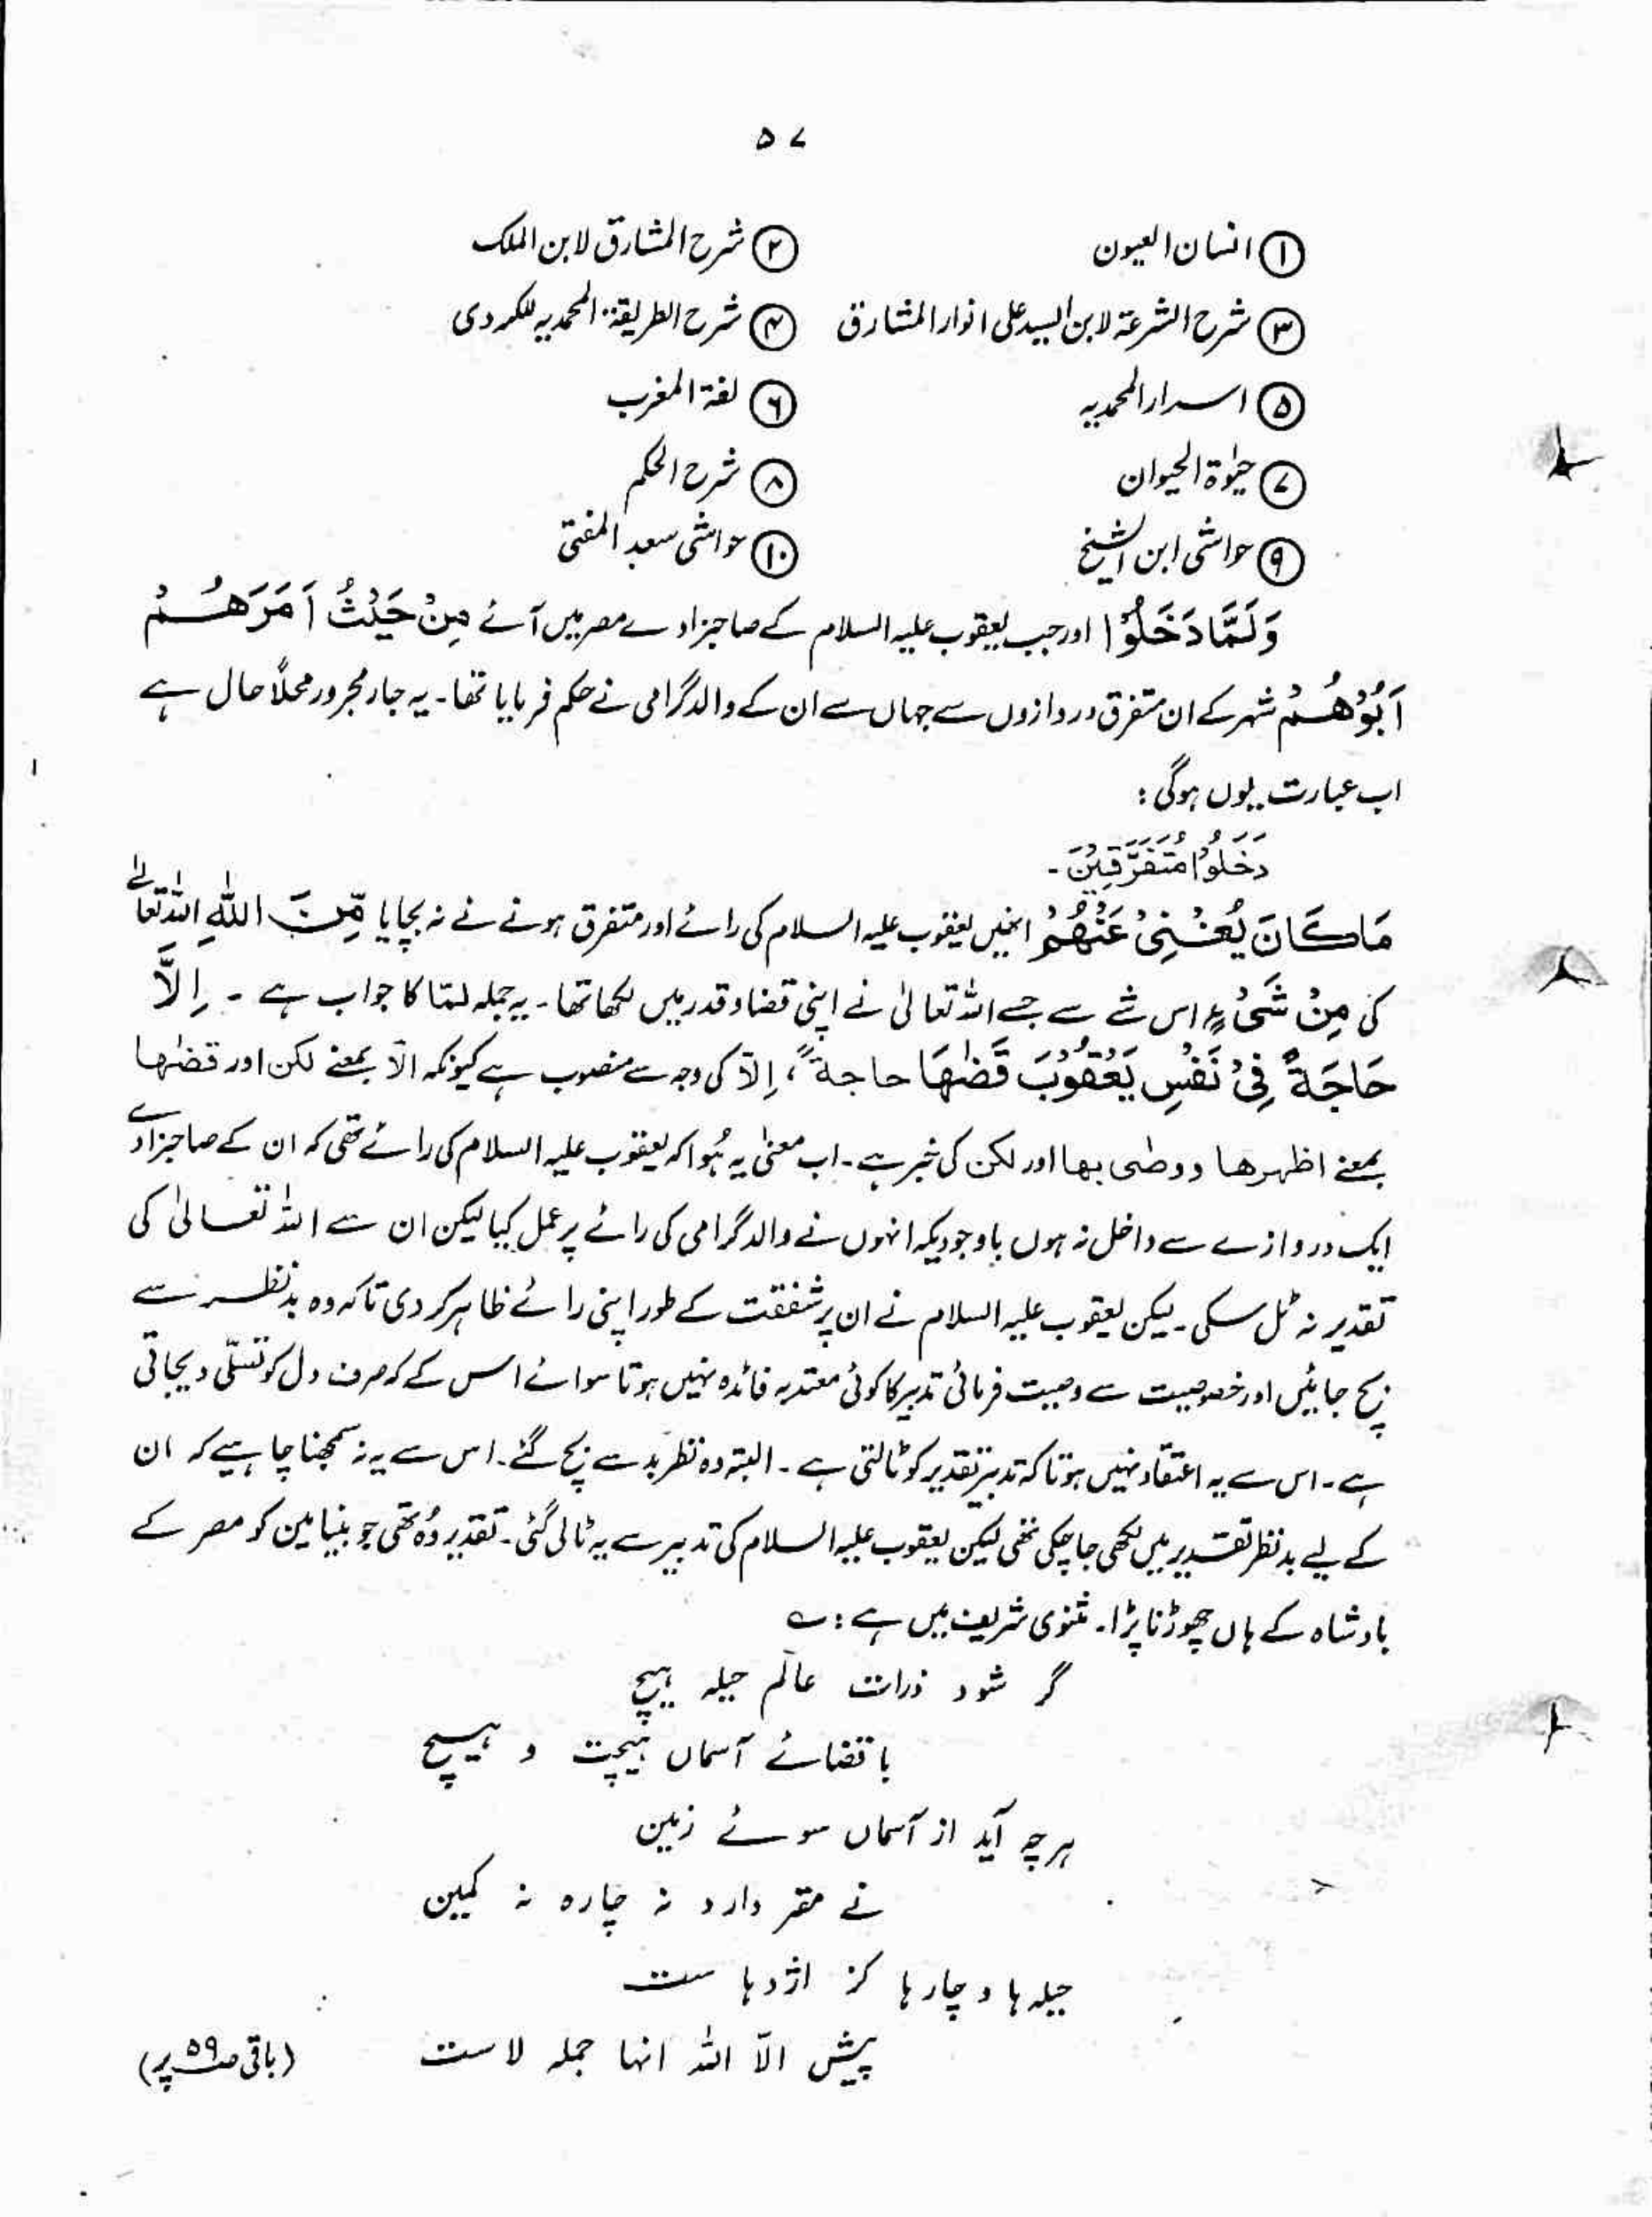 ۵۷
① انسان العیون ② شرح المشارق لابن الملک
③ شرح الشرعۃ لابن السید علی انوار المشارق ④ شرح الطریقۃ المحمدیہ للکردی
⑤ اسرار المحمدیہ ⑥ لغۃ المغرب
⑦ حیٰوۃ الحیوان ⑧ شرح الحکم
⑨ حواشی ابن الشیخ ⑩ حواشی سعد المفتی
وَلَمَّا دَخَلُوْا اور جب یعقوب علیہ السلام کے صاحبزادے مصر میں آئے مِنْ حَيْثُ اَمَرَهُمْ
اَبُوْهُمْ شہر کے ان متفرق دروازوں سے جہاں سے ان کے والد گرامی نے حکم فرمایا تھا۔ یہ جار مجرور محلاً حال ہے
اب عبارت یوں ہوگی :
دَخَلُوْا مُتَفَرِّقِيْنَ۔
مَا كَانَ يُغْنِيْ عَنْهُمْ انھیں یعقوب علیہ السلام کی رائے اور متفرق ہونے نے نہ بچایا مِّنَ اللّٰهِ اللہ تعالٰے
کی مِنْ شَيْءٍ اس شے سے جسے اللہ تعالیٰ نے اپنی قضا و قدر میں لکھا تھا۔ یہ جملہ لمّا کا جواب ہے ۔ اِلَّا
حَاجَةً فِيْ نَفْسِ يَعْقُوْبَ قَضٰهَا حاجۃً، اِلّا کی وجہ سے منصوب ہے کیونکہ الّا بمعنے لکن اور قضٰہا
بمعنے اظہرھا ووصّٰی بھا اور لکن کی خبر ہے۔ اب معنیٰ یہ ہُوا کہ یعقوب علیہ السلام کی رائے تھی کہ ان کے صاحبزادے
ایک دروازے سے داخل نہ ہوں باوجودیکہ انہوں نے والد گرامی کی رائے پر عمل کیا لیکن ان سے اللہ تعالیٰ کی
تقدیر نہ ٹل سکی۔ لیکن یعقوب علیہ السلام نے ان پر شفقت کے طور اپنی رائے ظاہر کر دی تاکہ وہ بدنظر سے
بچ جائیں اور خصوصیت سے وصیت فرمائی تدبیر کا کوئی معتدبہ فائدہ نہیں ہوتا سوائے اس کے کہ صرف دل کو تسلّی دیجاتی
ہے۔ اس سے یہ اعتقاد نہیں ہوتا کہ تدبیر تقدیر کو ٹالتی ہے ۔ البتہ وہ نظر بد سے بچ گئے۔ اس سے یہ نہ سمجھنا چاہیے کہ ان
کے لیے بدنظر تقدیر میں لکھی جا چکی تھی لیکن یعقوب علیہ السلام کی تدبیر سے یہ ٹالی گئی۔ تقدیر وُہ تھی جو بنیامین کو مصر کے
بادشاہ کے ہاں چھوڑنا پڑا۔ مثنوی شریف میں ہے : ؎
گر شود ذرات عالم حیلہ پیچ
با قضائے آسماں ہیچت و ہیچ
ہر چہ آید از آسماں سوئے زمین
نے مقر دارد نہ چارہ نہ کمین
حیلہ ہا و چارہا کز اژدہا ست
پیش الّا اللہ انہا جملہ لا ست
(باقی صفحہ ۵۹ پر)